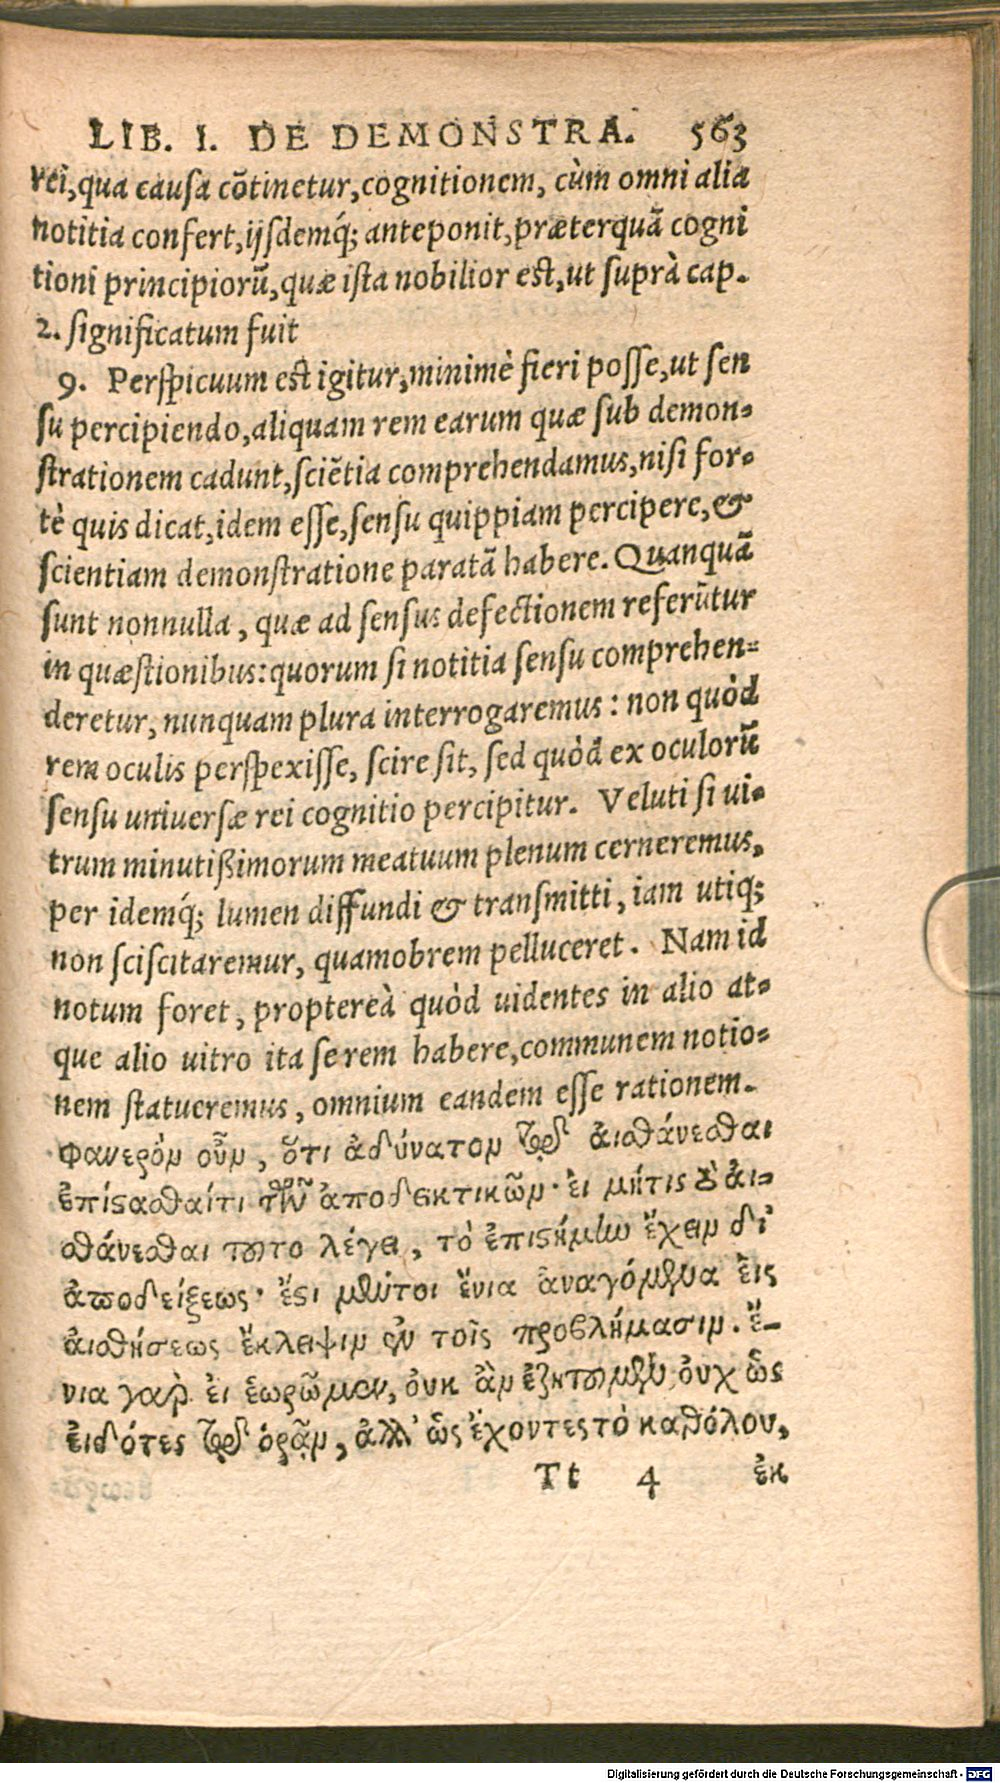 LIB. I. DE DEMONSTRA. 563
rei, qua causa cõtinetur, cognitionem, cùm omni alia
notitia confert, ijsdemq́; anteponit, præterquã cogni
tioni principiorũ, quæ ista nobilior est, ut suprà cap.
2. significatum fuit
9. Perspicuum est igitur, minimè fieri posse, ut sen
su percipiendo, aliquam rem earum quæ sub demon-
strationem cadunt, sciẽtia comprehendamus, nisi for-
tè quis dicat, idem esse, sensu quippiam percipere, &
scientiam demonstratione paratã habere. Quanquã
sunt nonnulla, quæ ad sensus defectionem referũtur
in quæstionibus: quorum si notitia sensu comprehen-
deretur, nunquam plura interrogaremus: non quòd
rem oculis perspexisse, scire sit, sed quòd ex oculorũ
sensu uniuersæ rei cognitio percipitur. Veluti si ui-
trum minutißimorum meatuum plenum cerneremus,
per idemq́; lumen diffundi & transmitti, iam utiq;
non sciscitaremur, quamobrem pelluceret. Nam id
notum foret, proptereà quòd uidentes in alio at-
que alio uitro ita se rem habere, communem notio-
nem statueremus, omnium eandem esse rationem.
φανερὸν οὖν, ὅτι ἀδύνατον τῷ αἰσθάνεσθαι
ἐπίστασθαί τι τῶν ἀποδεικτικῶν· εἰ μή τις τὸ αἰ-
σθάνεσθαι τοῦτο λέγει, τὸ ἐπιστήμην ἔχειν δι᾽
ἀποδείξεως· ἔστι μέντοι ἔνια ἀναγόμενα εἰς
αἰσθήσεως ἔκλειψιν ἐν τοῖς προβλήμασιν. ἔ-
νια γὰρ εἰ ἑωρῶμεν, οὐκ ἂν ἐζητοῦμεν, οὐχ ὡς
εἰδότες τῷ ὁρᾷν, ἀλλ᾽ ὡς ἔχοντες τὸ καθόλου,
Tt 4 ἐκ
Digitalisierung gefördert durch die Deutsche Forschungsgemeinschaft - DFG